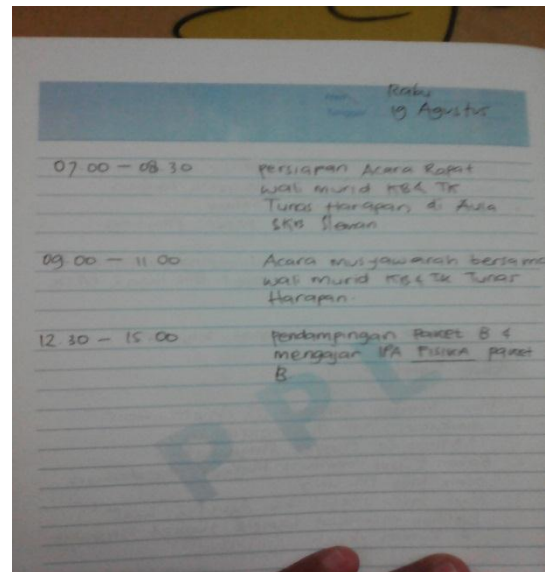 Hari Rabu
Tanggal 19 Agustus
07.00 - 08.30 persiapan Acara Rapat
wali murid KB & TK
Tunas Harapan, di Aula
SKB Sleman
09.00 - 11.00 Acara musyawarah bersama
wali murid KB & TK Tunas
Harapan.
12.30 - 15.00 pendampingan paket B &
mengajar IPA FISIKA paket
B
PPL